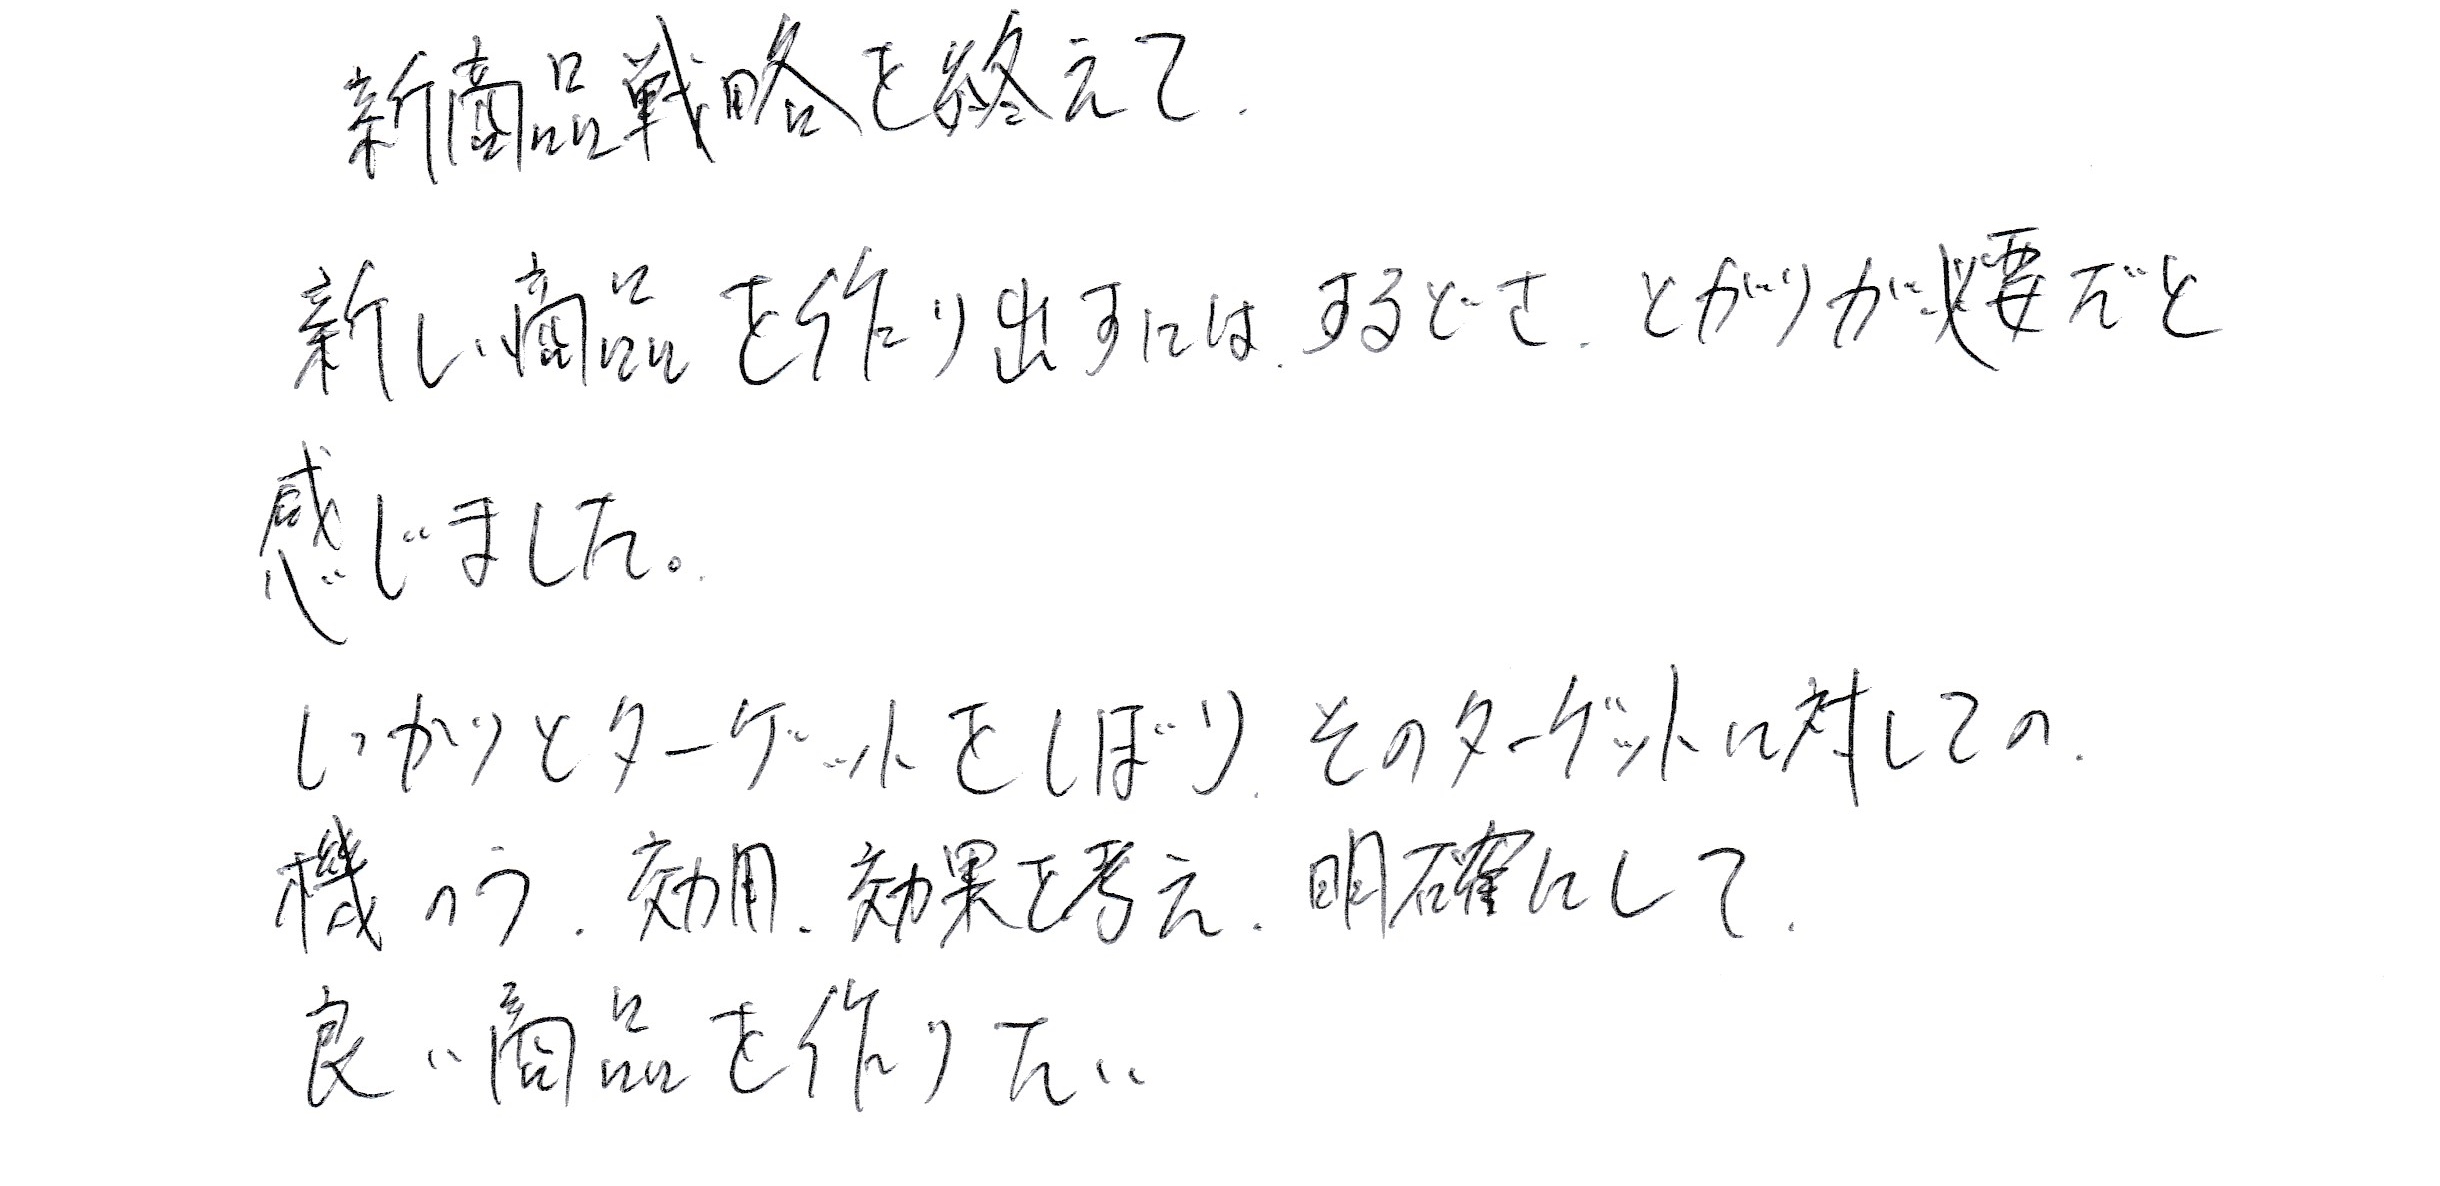 新商品戦略を終えて.
新しい商品を作り出すには、するどさ、とがりが必要だと
感じました。
しっかりとターゲットをしぼり、そのターゲットに対しての、
機のう、効用、効果を考え、明確にして、
良い商品を作りたい